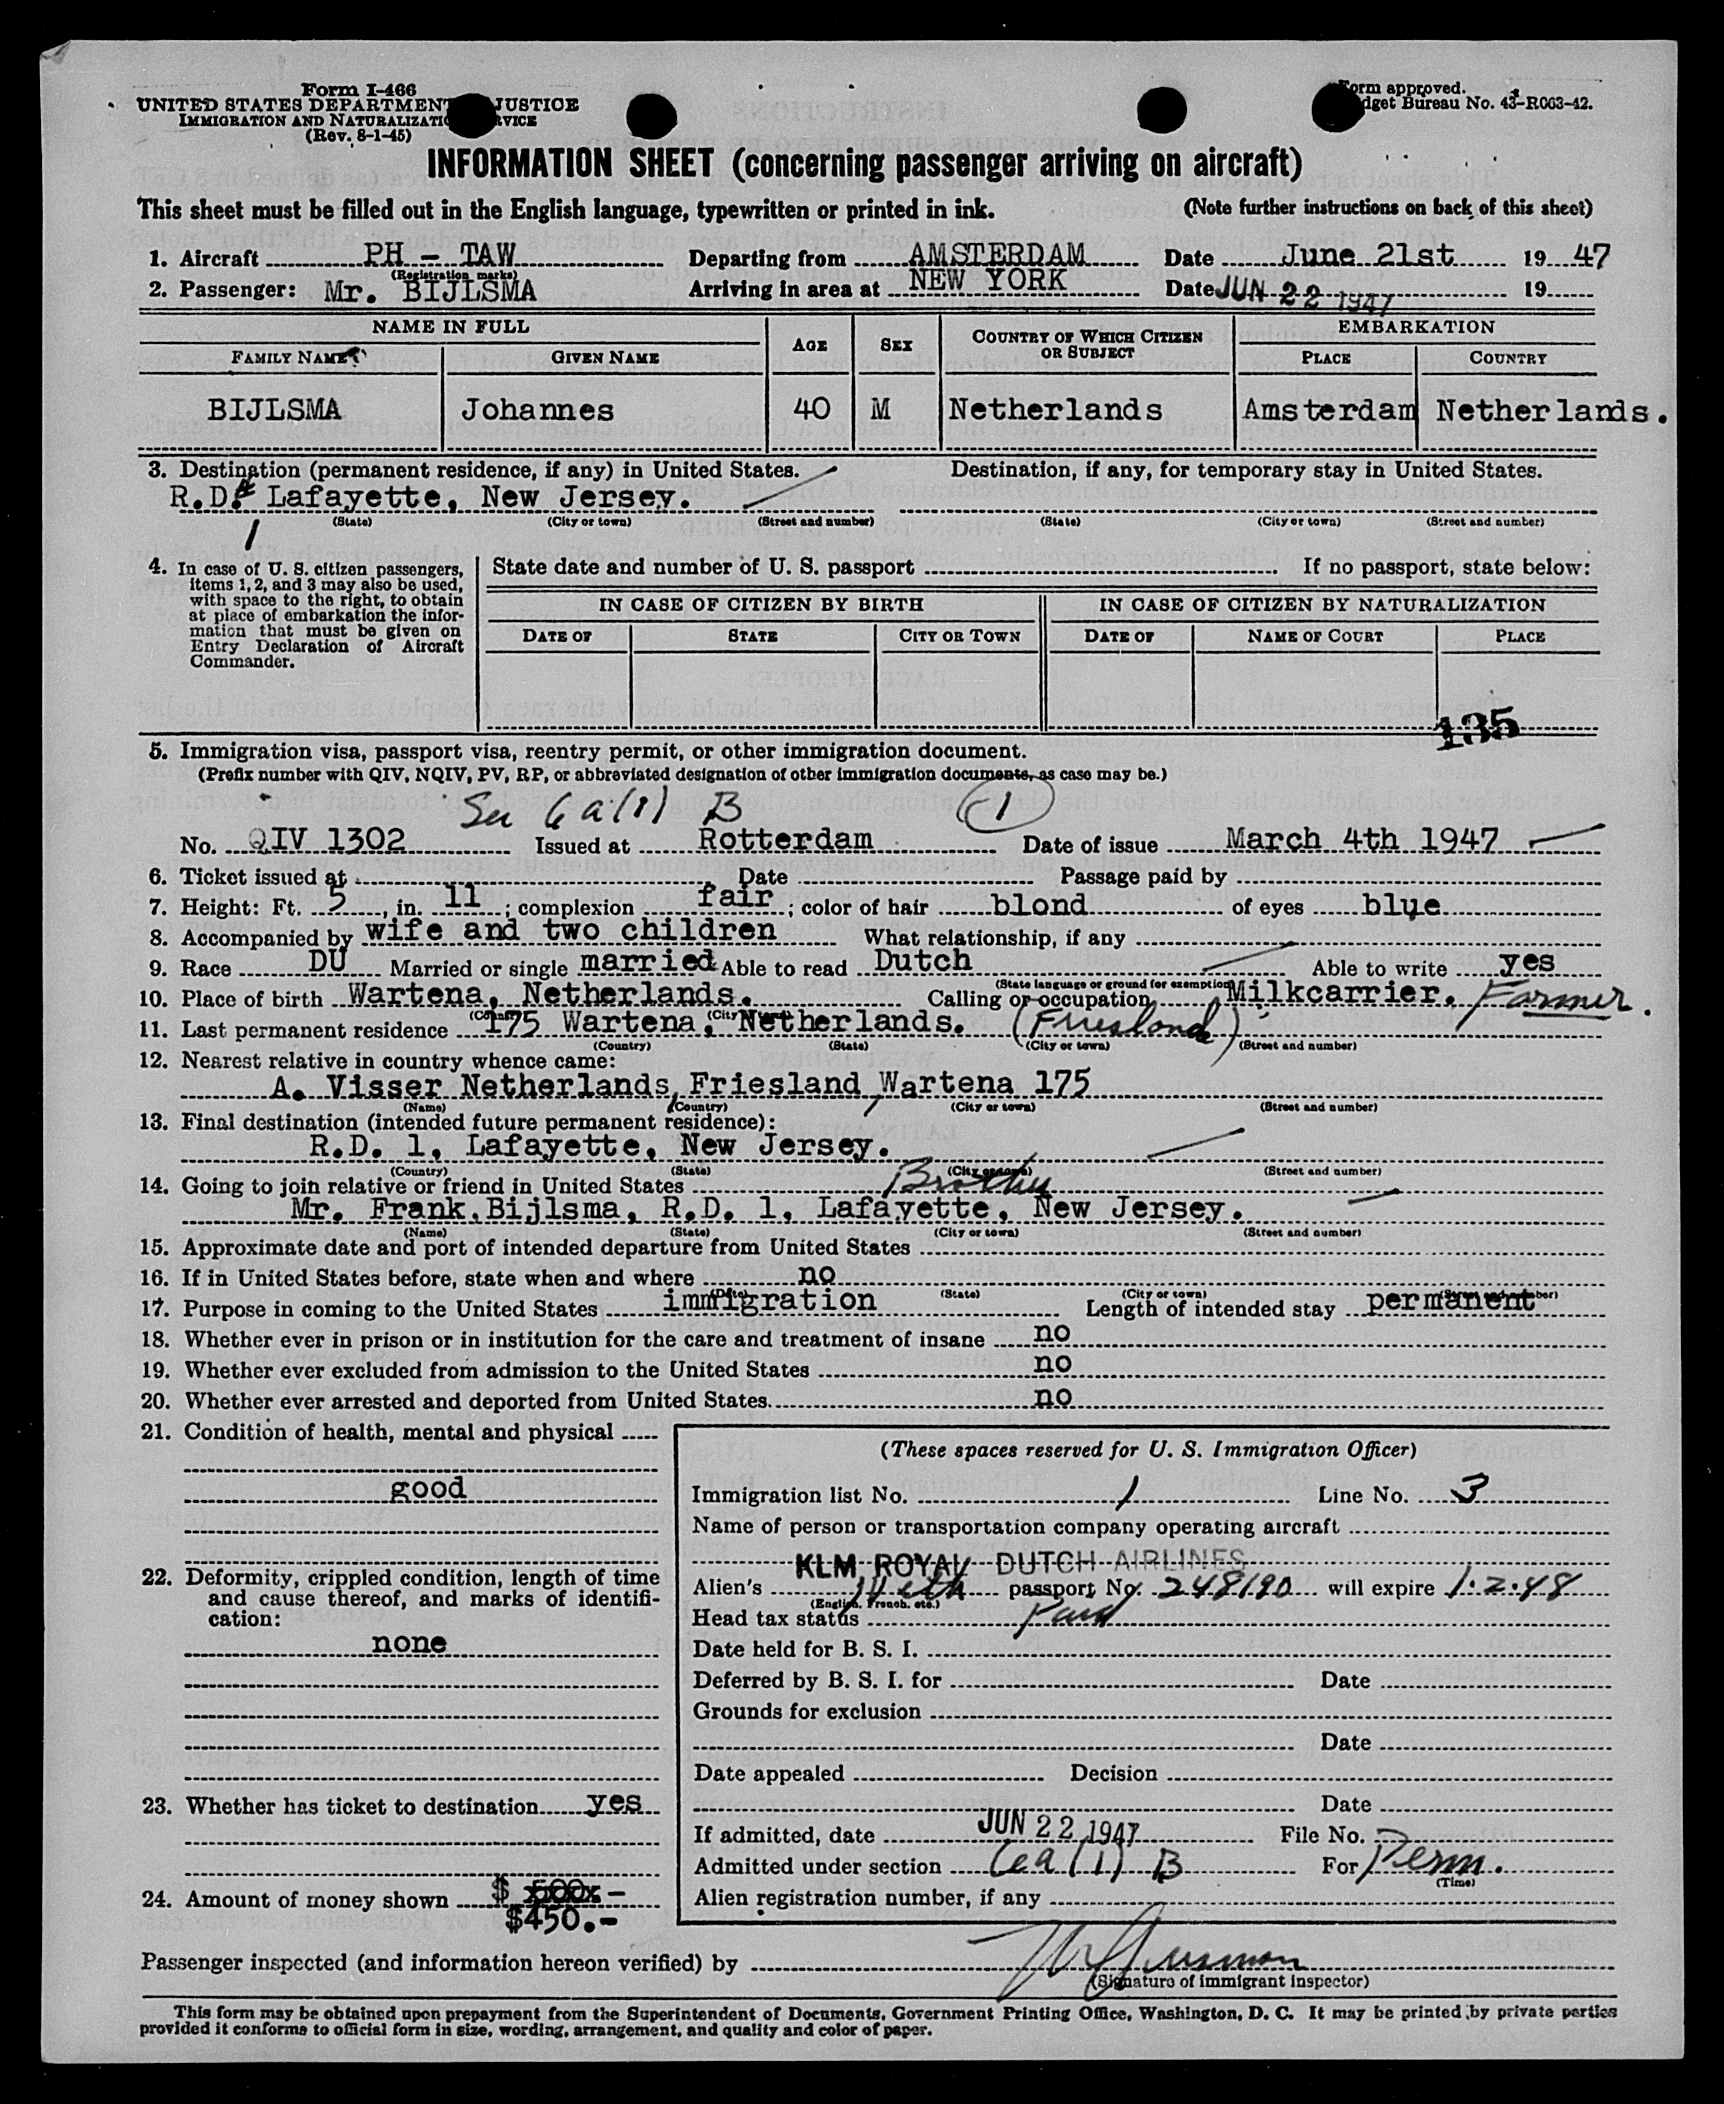 Form I-466
UNITED STATES DEPARTMENT JUSTICE
IMMIGRATION AND NATURALIZATION
(Rev. 8-1-45)
Form approved.
Budget Bureau No. 43-R063-42.
INFORMATION SHEET (concerning passenger arriving on aircraft)
This sheet must be filled out in the English language, typewritten or printed in ink. (Note further instructions on back of this sheet)
1. Aircraft PH - TAW Departing from AMSTERDAM Date June 21st 19 47
(Registration marks)
2. Passenger: Mr. BIJLSMA Arriving in area at NEW YORK Date JUN 22 1947 19
NAME IN FULL AGE SEX COUNTRY OF WHICH CITIZEN OR SUBJECT EMBARKATION
FAMILY NAME GIVEN NAME PLACE COUNTRY
BIJLSMA Johannes 40 M Netherlands Amsterdam Netherlands.
3. Destination (permanent residence, if any) in United States. Destination, if any, for temporary stay in United States.
R.D. Lafayette, New Jersey.
(State) (City or town) (Street and number) (State) (City or town) (Street and number)
1
4. In case of U. S. citizen passengers, items 1, 2, and 3 may also be used, with space to the right, to obtain at place of embarkation the information that must be given on Entry Declaration of Aircraft Commander.
State date and number of U. S. passport If no passport, state below:
IN CASE OF CITIZEN BY BIRTH IN CASE OF CITIZEN BY NATURALIZATION
DATE OF STATE CITY OR TOWN DATE OF NAME OF COURT PLACE
135
5. Immigration visa, passport visa, reentry permit, or other immigration document.
(Prefix number with QIV, NQIV, PV, RP, or abbreviated designation of other immigration documents, as case may be.)
Sec 6a(1) B 1
No. QIV 1302 Issued at Rotterdam Date of issue March 4th 1947
6. Ticket issued at Date Passage paid by
7. Height: Ft. 5, in. 11; complexion fair; color of hair blond of eyes blye
8. Accompanied by wife and two children What relationship, if any
9. Race DU Married or single married Able to read Dutch Able to write yes
(State language or ground for exemption)
10. Place of birth Wartena, Netherlands. Calling or occupation Milkcarrier. Farmer.
11. Last permanent residence 175 Wartena, Netherlands. (Friesland)
(Country) (State) (City or town) (Street and number)
12. Nearest relative in country whence came:
A. Visser Netherlands, Friesland, Wartena 175
(Name) (Country) (City or town) (Street and number)
13. Final destination (intended future permanent residence):
R.D. 1, Lafayette, New Jersey.
(Country) (State) (City or town) (Street and number)
14. Going to join relative or friend in United States Brother
Mr. Frank Bijlsma, R.D. 1, Lafayette, New Jersey.
(Name) (State) (City or town) (Street and number)
15. Approximate date and port of intended departure from United States
16. If in United States before, state when and where no
(Date) (State) (City or town) (Street and number)
17. Purpose in coming to the United States immigration Length of intended stay permanent
18. Whether ever in prison or in institution for the care and treatment of insane no
19. Whether ever excluded from admission to the United States no
20. Whether ever arrested and deported from United States. no
21. Condition of health, mental and physical
good
22. Deformity, crippled condition, length of time and cause thereof, and marks of identification:
none
23. Whether has ticket to destination yes
24. Amount of money shown $ 500x -
$450.-
(These spaces reserved for U. S. Immigration Officer)
Immigration list No. 1 Line No. 3
Name of person or transportation company operating aircraft
KLM ROYAL DUTCH AIRLINES
Alien's Neth passport No. 248190 will expire 1-2-48
(English, French, etc.)
Head tax status Paid
Date held for B. S. I.
Deferred by B. S. I. for Date
Grounds for exclusion
Date
Date appealed Decision
Date
If admitted, date JUN 22 1947 File No.
Admitted under section 6a(1) B For Perm.
(Time)
Alien registration number, if any
Passenger inspected (and information hereon verified) by
(Signature of immigrant inspector)
This form may be obtained upon prepayment from the Superintendent of Documents, Government Printing Office, Washington, D. C. It may be printed by private parties
provided it conforms to official form in size, wording, arrangement, and quality and color of paper.